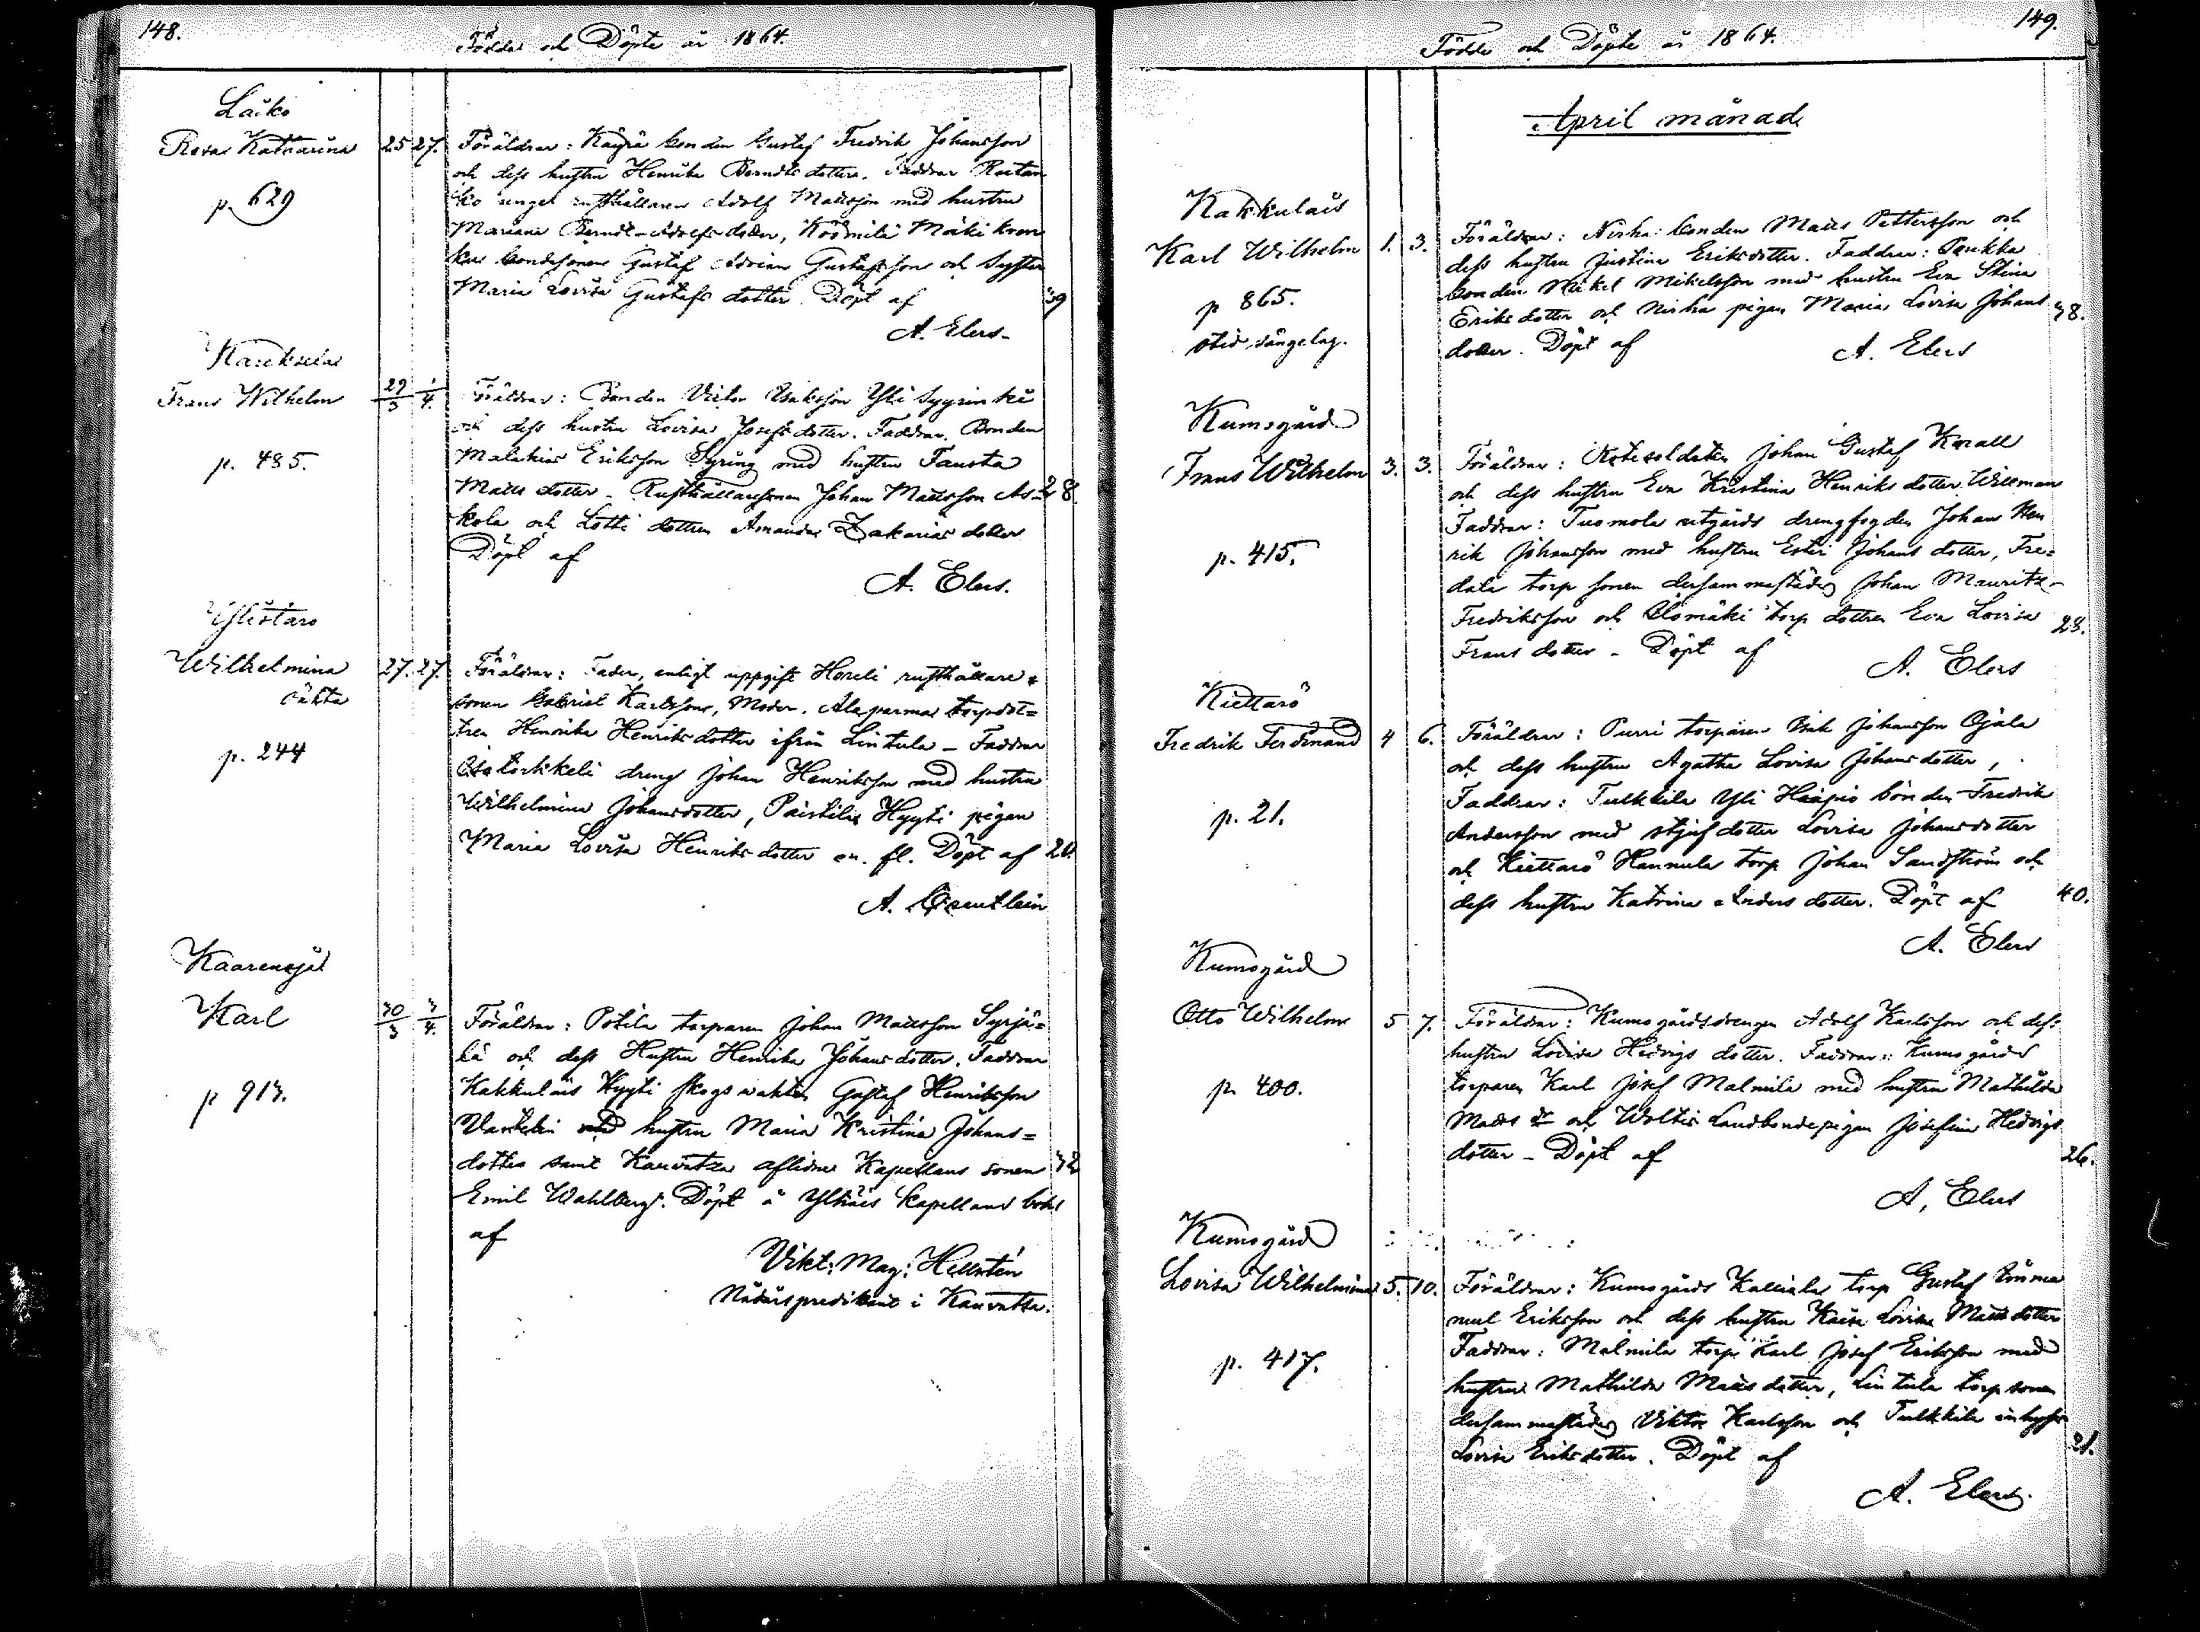 148.
Födde och Döpte år 1864.
Laiko
Rosa Katharina 25 27. Föräldrar: Käyrä bonden Gustaf Fredrik Johansson
och dess hustru Henrika Berndtsdotter. Faddrar
p. 629
unge rusthållaren Adolf Matsson med hustru
Mariana Berndt-Adolfsdotter, Mäki
bondesonen Gustaf Adrian Gustafsson och syster
Maria Lovisa Gustafsdotter. Döpt af 39
A. Elers.
Frans Wilhelm 29/3 1/4. Föräldrar: Bonden Victor Isaksson Yli
och dess hustru Lovisa Josefsdotter. Faddrar. Bonden
p. 485.
Malakias Eriksson Syring med hustru Fausta
Matts dotter - Rusthållaresonen Johan Mattsson As= 28.
kola och Lotti dottren Amanda Zakarias dotter
Döpt af
A. Elers.
Ylistaro
Wilhelmina 27. 27. Föräldrar: Fader, enligt uppgift rusthållare=
oäkta
sonen Gabriel Karlsson, Moder. torpdot=
p. 244
tren Henrika Henriksdotter ifrån Lintula - Faddrar
dreng Johan Henriksson med hustru
Wilhelmina Johansdotter, Paistila Hyyti pigan
Maria Lovisa Henriksdotter en. fl. Döpt af
A.
Kaarenoja
Karl 30/3 3/4. Föräldrar: torparen Johan Mattsson Syrjä=
lä och dess Hustru Henrika Johansdotter. Faddrar
p 913.
Kakkulais Hyyti skogs vakten Gustaf Henriksson
med hustru Maria Kristina Johans=
dotter samt Kauvatsa aflidne Kapellans sonen 32
Emil Wahlberg. Döpt å Yltiäis Kapellans bohl
af
Vikt: Mag: Hellstén
Nådårspredikant i Kauvatsa.
149.
Födde och Döpte år 1864.
April månad
Kakkulais
Karl Wilhelm 1. 3. Föräldrar: bonden Matts Pettersson och
dess hustru Justina Eriksdotter. Faddrar: Penkka
p 865.
bonden Mikel Mikelsson med hustru Eva Stina
Eriks dotter och pigan Maria Lovisa Johans 38.
dotter. Döpt af
A. Elers
Kumogård
Frans Wilhelm 3. 3. Föräldrar: Johan Gustaf Korall
och dess hustru Eva Kristina Henriks dotter Willman
p. 415.
Faddrar: Tuomola utgårds drengfogden Johan Hen
rik Johansson med hustru Ester Johans dotter, Fre=
data torp sonen dersammastädes Johan Mauritz
Fredriksson och torp dottren Eva Lovisa 28.
Frans dotter - Döpt af
A. Elers
Kiettarö
Fredrik Ferdinand 4 6. Föräldrar: Purri torparen Isak Johansson Ojala
och dess hustru Agatha Lovisa Johansdotter,
p. 21.
Faddrar: Tulkkila Yli Haapio bonden Fredrik
Andersson med styfdotter Lovisa Johansdotter
och Kiettarö Hannula torp Johan Sandström och
dess hustru Katrina Anders dotter. Döpt af 40.
A. Elers
Kumogård
Otto Wilhelm 5 7. Föräldrar: Kumogårdsdrengen Adolf Karlsson och dess
hustru Lovisa Hedvigs dotter. Faddrar: Kumogårds
p. 400.
torparen Karl Josef Malmila med hustru Mathilda
Matts dr och Landbondepigan Josefina Hedvigs
dotter - Döpt af 26.
A, Elers
Kumogård
Lovisa Wilhelmina 5. 10. Föräldrar: Kumogårds Kalliala torp Gustaf Emma
nuel Eriksson och dess hustru Kaisa Lovisa Mattsdotter
p. 417.
Faddrar: Malmila torp: Karl Josef Eriksson med
hustru Mathilda Matts dotter, Lintula torp sonen
dersammastädes Viktor Karlsson och Tulkkila inhyses
Lovisa Eriksdotter. Döpt af
A. Elers.